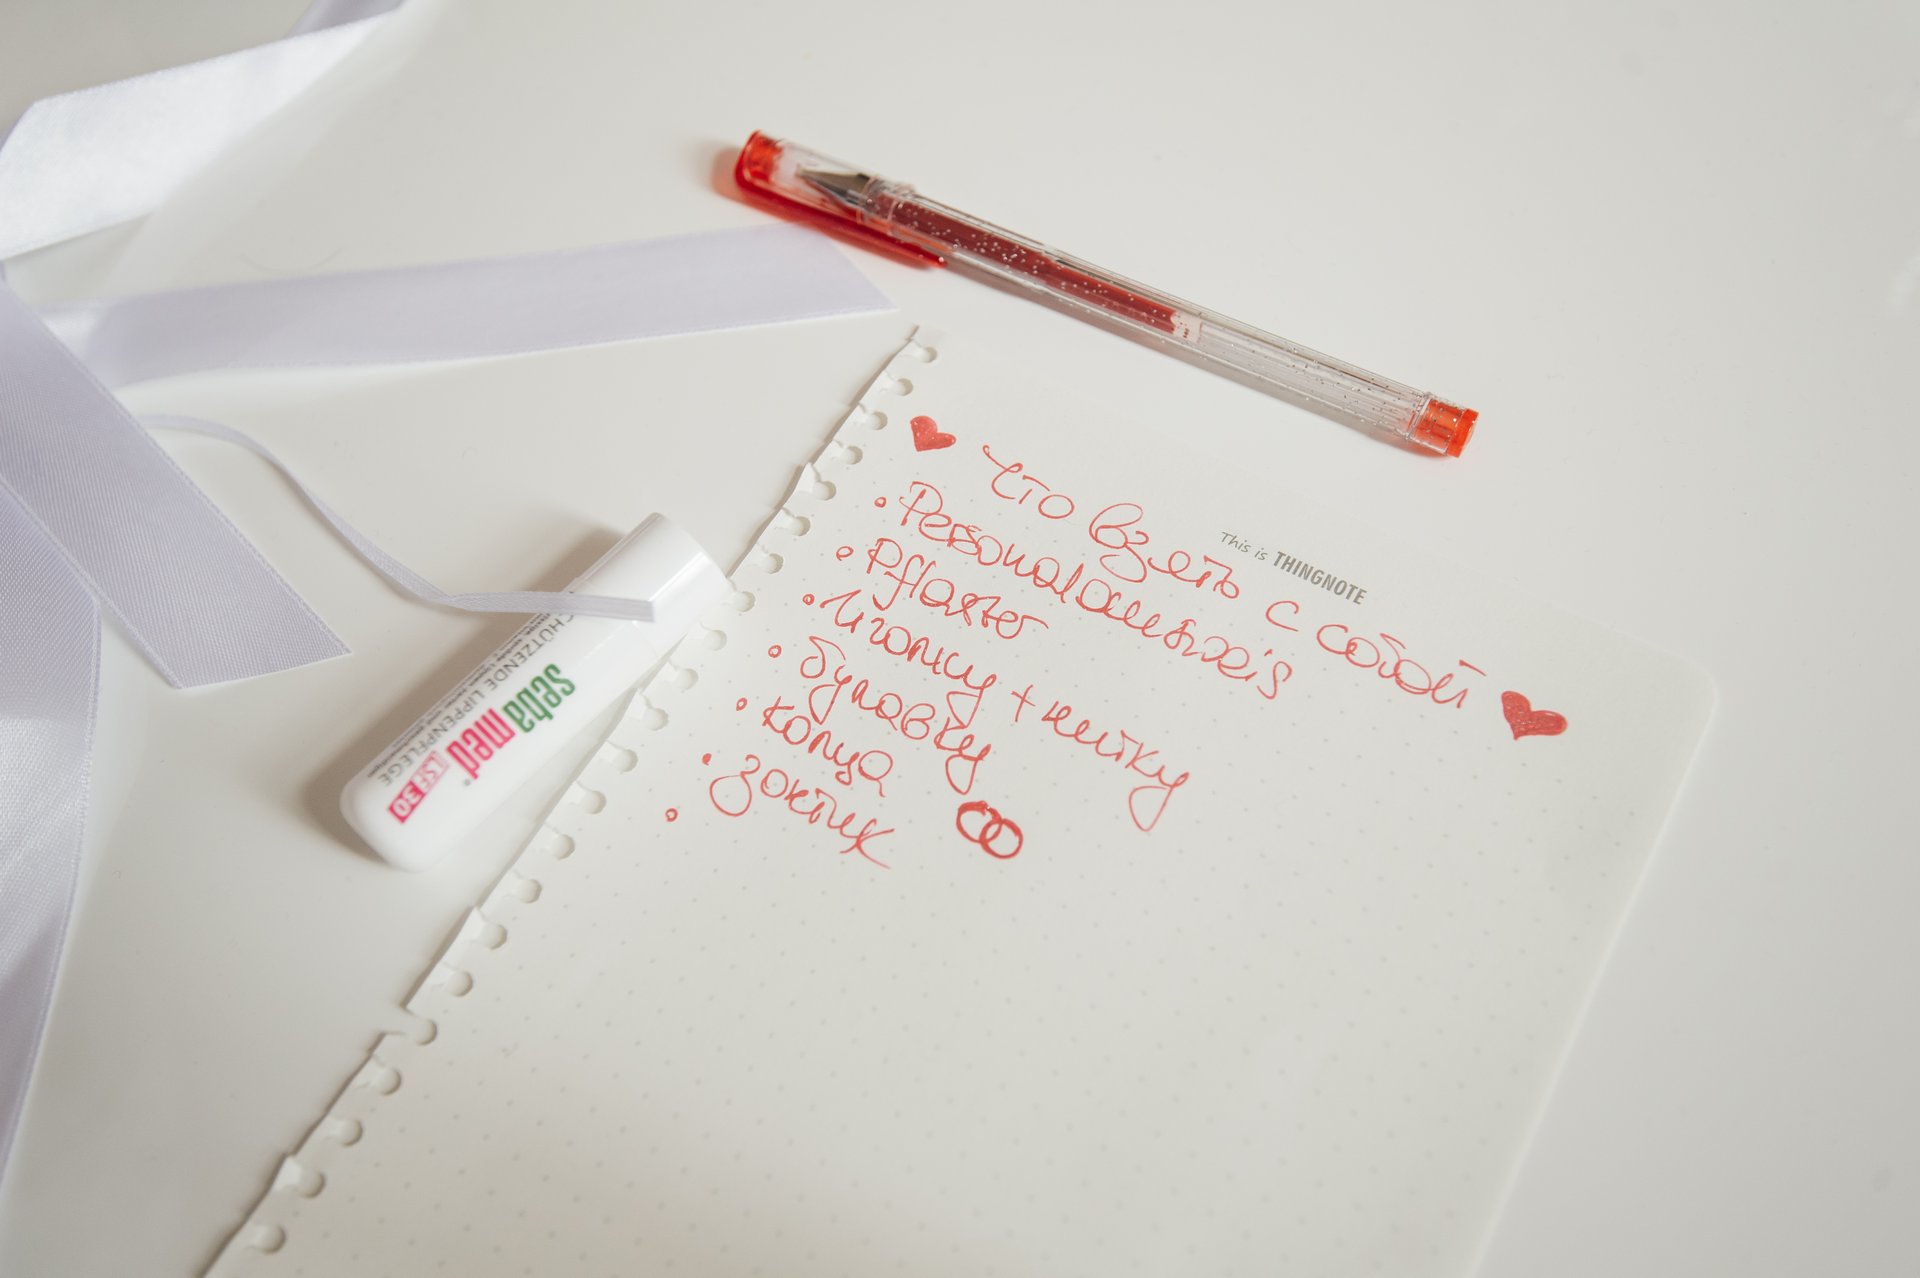 This is THINGNOTE
Что взять с собой
• Personalausweis
• Pflaster
• Иголку + нитку
• булавку
• кольца
• зонтик
•
SCHÜTZENDE LIPPENPFLEGE
seba med
LSF 30